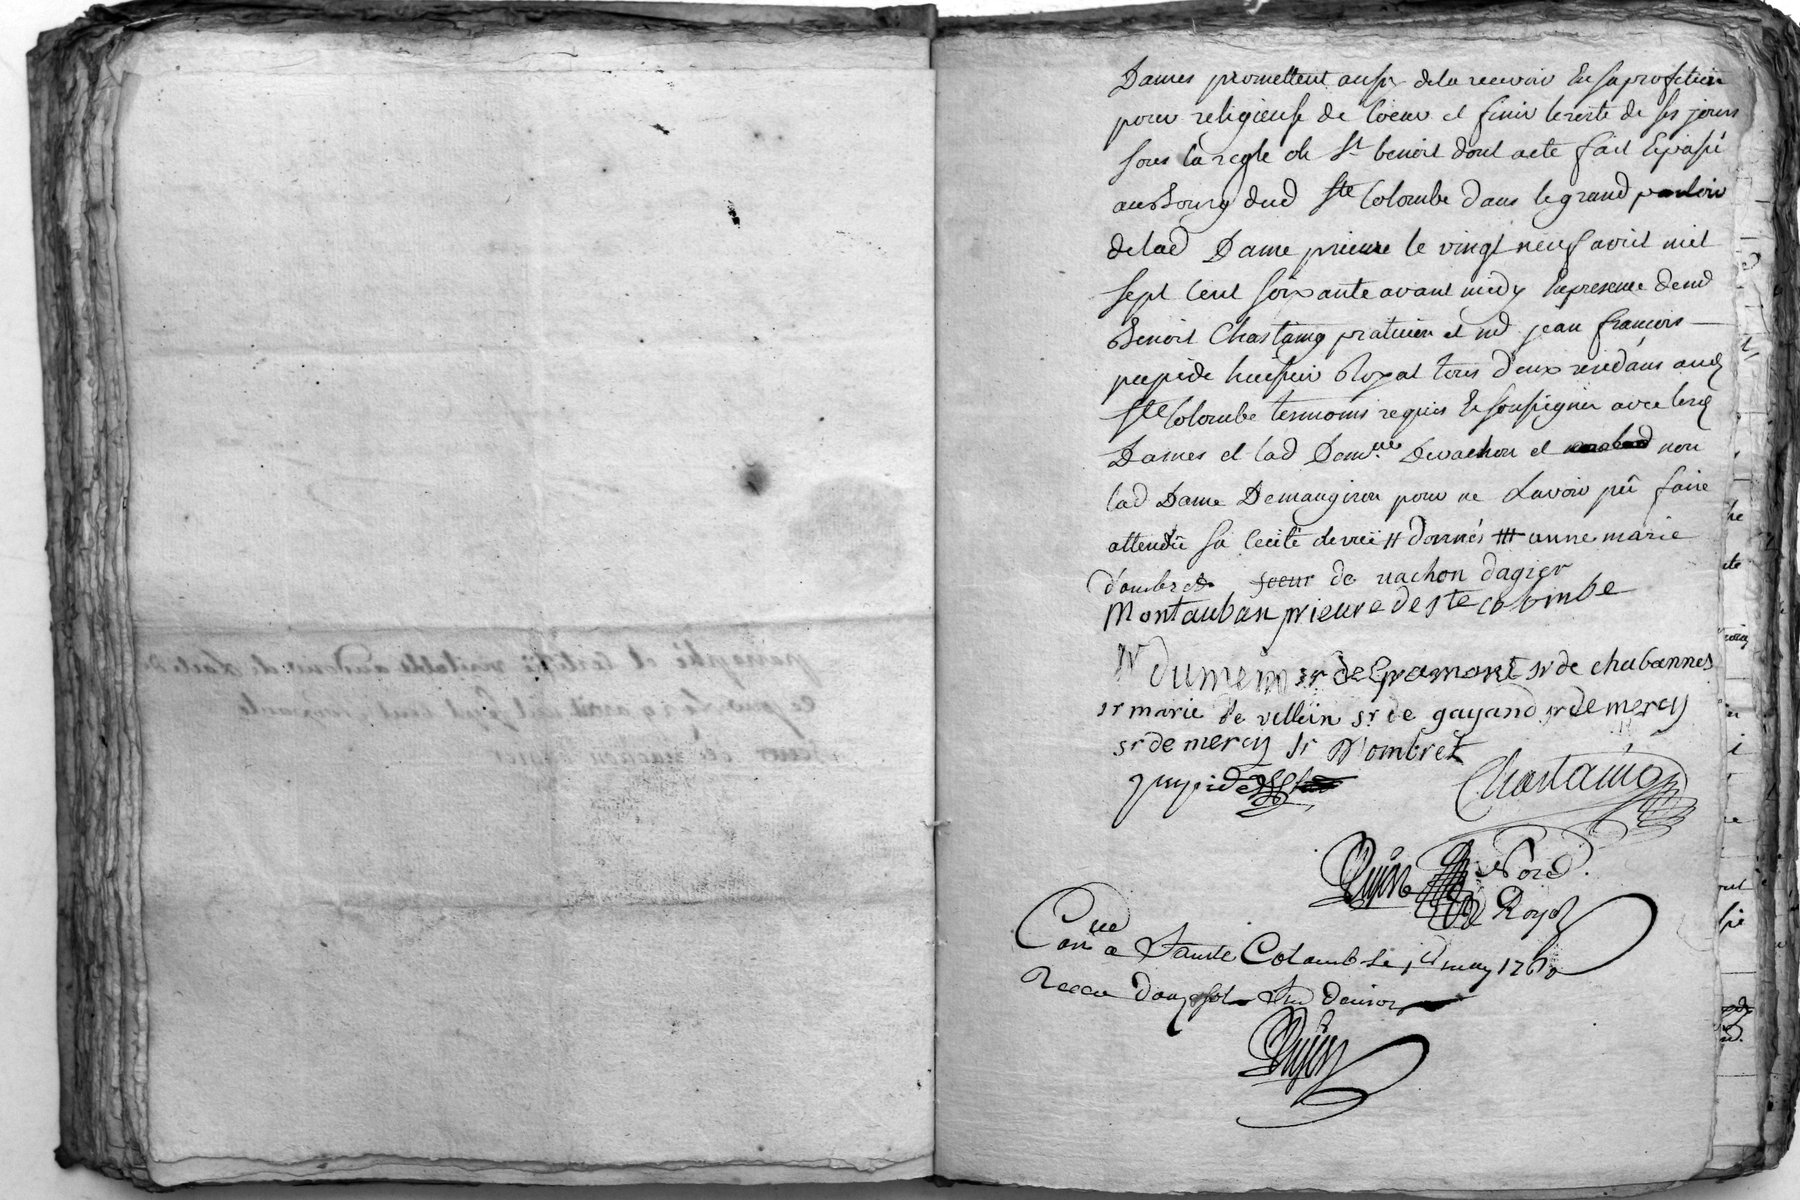 Dames promettent aussy de la recevoir En sa profession
pour religieuse de Coeur et finir le reste de ses jours
sous la regle de St benoit dont acte fait Et passé
au Bourg dud Ste Colombe dans le grand parloir
de lad Dame prieure le vingt neuf avril mil
sept Cent soixante avant midy En presence de md
Benoit Chastaing praticien et md jean francois
pupide huissier Royal tous deux residans aud
Ste Colombe temmoins requis Et soussignés avec lesd
Dames et lad Dem.lle Devachon et non
lad Dame Demaugiron pour ne Lavoir pû faire
attendû sa Cecité de vuë # donnés ## anne marie
d'ombret soeur de vachon dagier
Montauban prieure de ste colombe
sr dumein sr de gramont sr de chabannes
sr marie de villein sr de gayand sr de mercy
sr de mercy sr d'ombret
pupide Chastaing
Nore.
Royal
Con.lle a Sainte Colombe le may 1760
Receu douze sols
parraphé et Certiffié veritable au desir de Lacte de
ce jour le 29 avril mil sept Cent soixante
soeur de vachon dagier